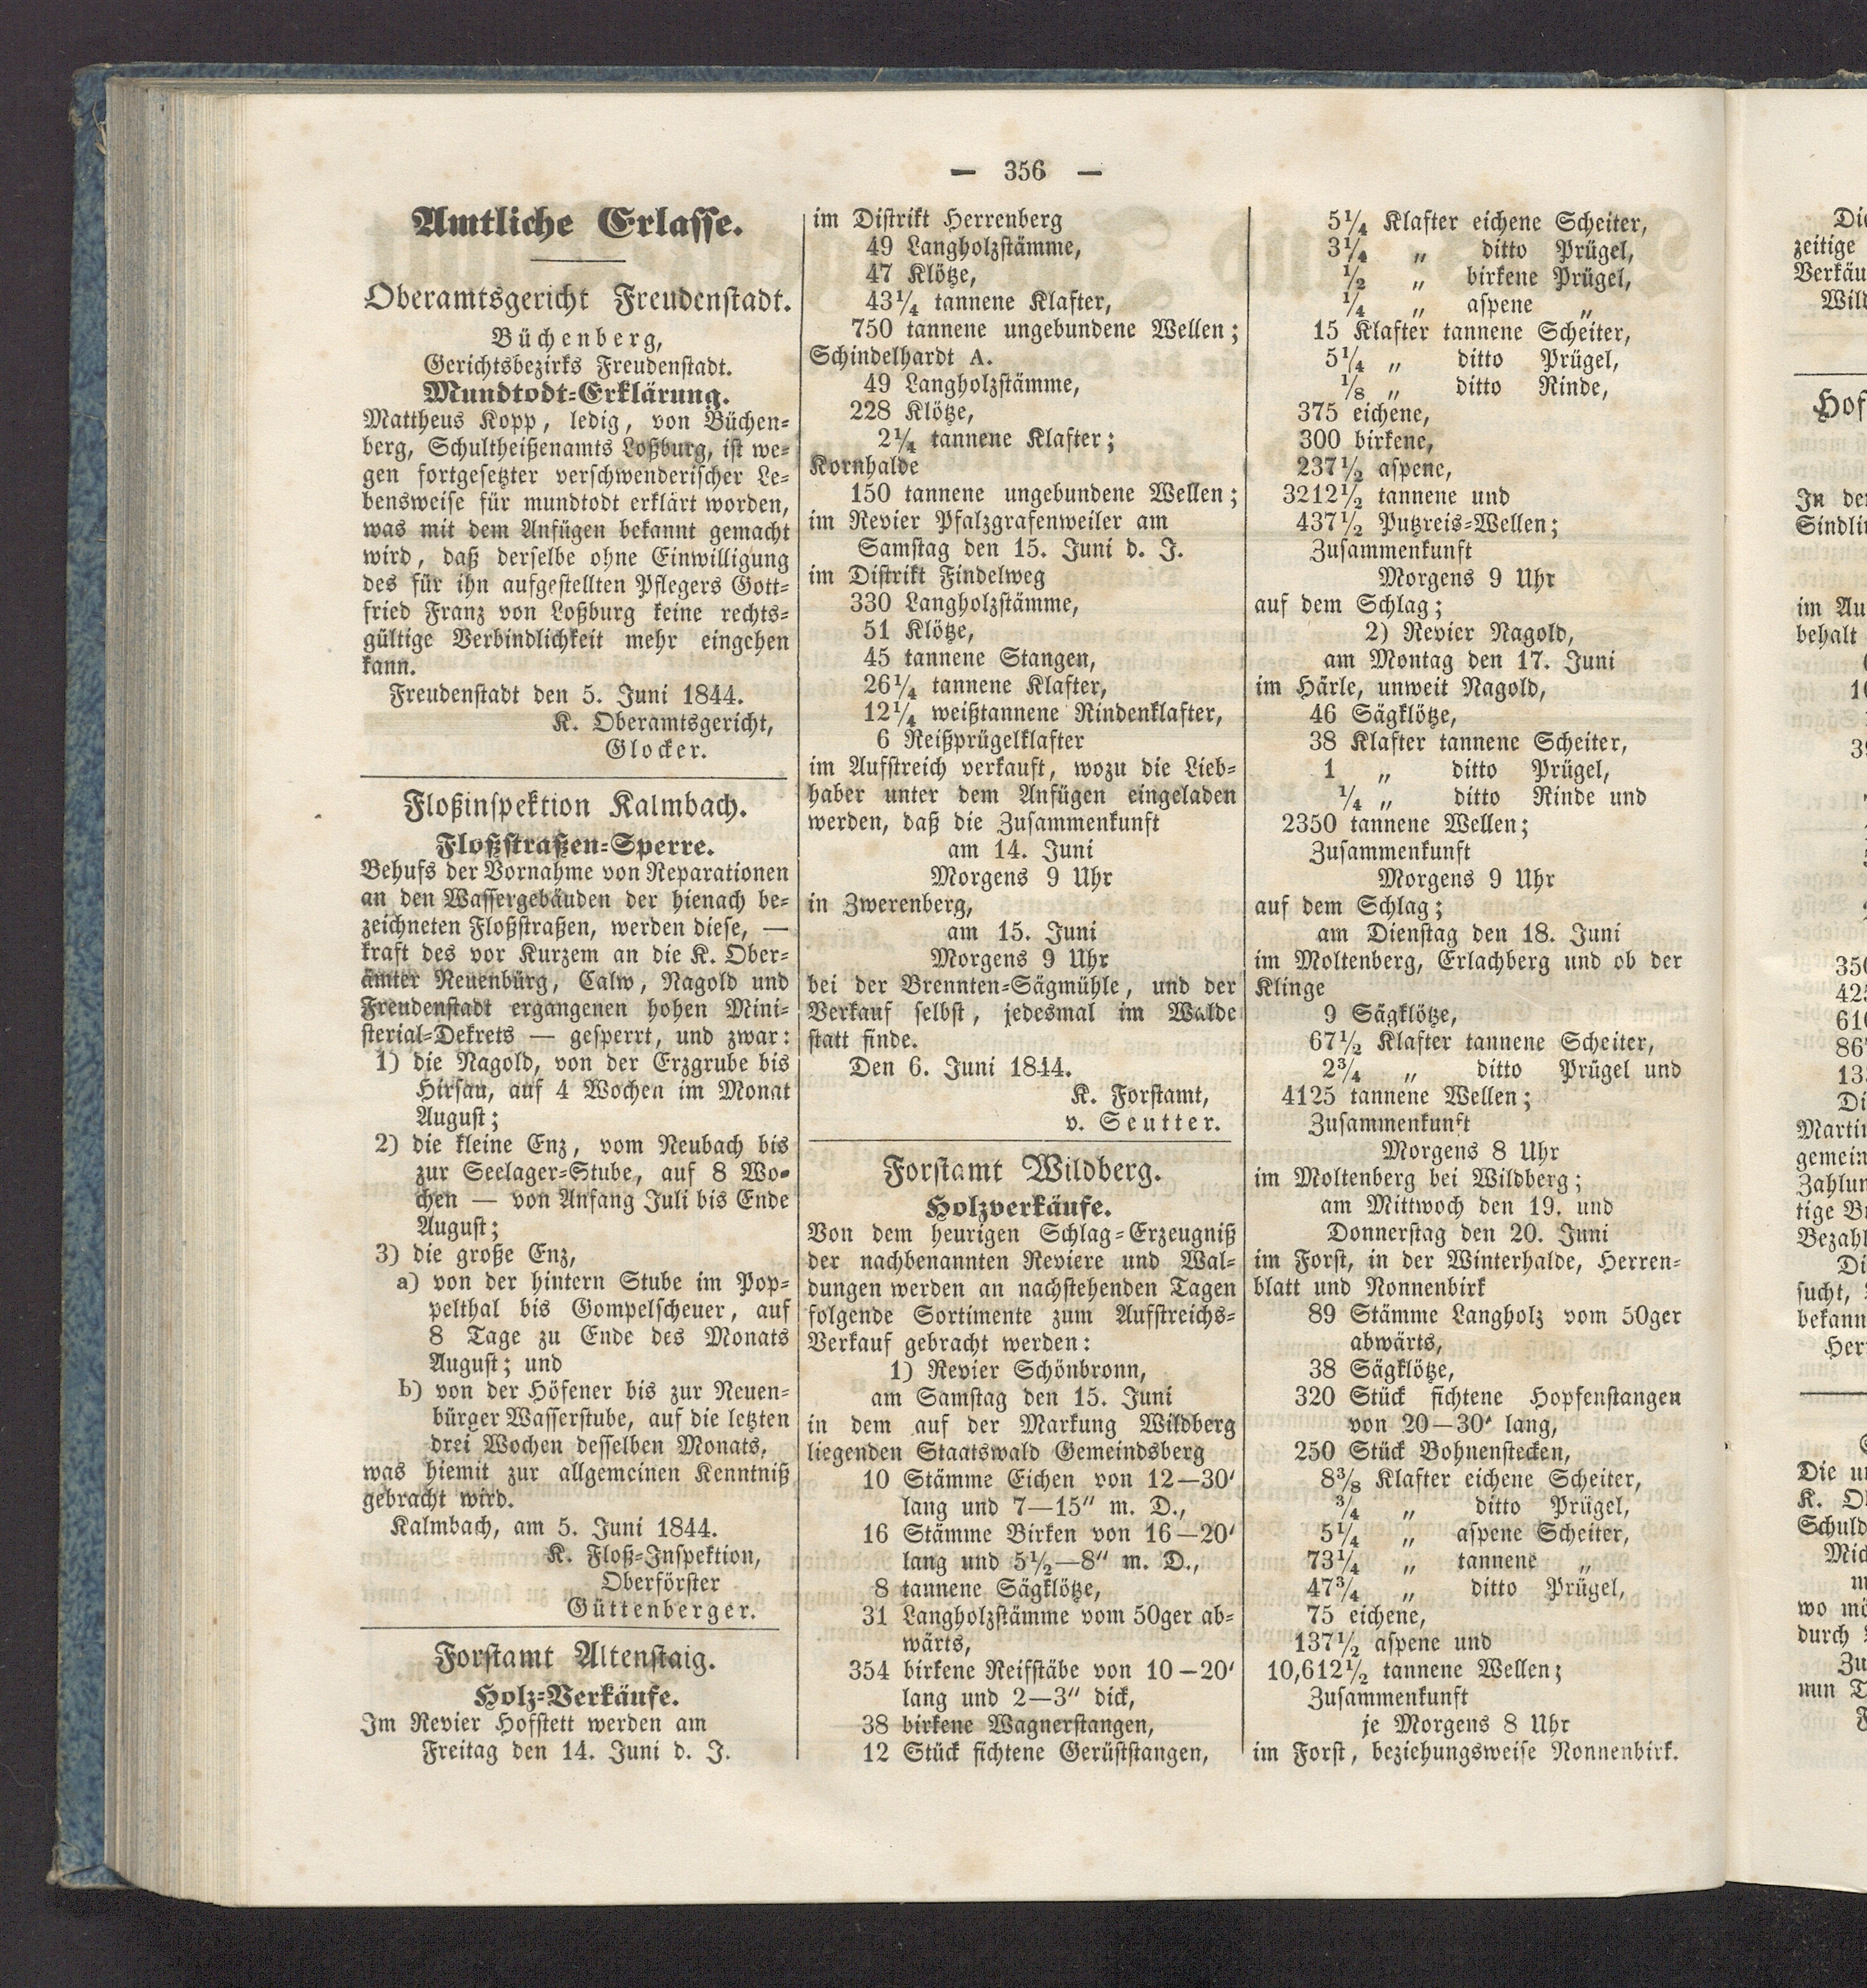 — 356 —
Amtliche Erlasse.
Oberamtsgericht Freudenstadt.
Büchenberg,
Gerichtsbezirks Freudenstadt.
Mundtodt-Erklärung.
Mattheus Kopp, ledig, von Büchen-
berg, Schultheißenamts Loßburg, ist we-
gen fortgesetzter verschwenderischer Le-
bensweise für mundtodt erklärt worden,
was mit dem Anfügen bekannt gemacht
wird, daß derselbe ohne Einwilligung
des für ihn aufgestellten Pflegers Gott-
fried Franz von Loßburg keine rechts-
gültige Verbindlichkeit mehr eingehen
kann.
Freudenstadt den 5. Juni 1844.
K. Oberamtsgericht,
Glocker.
Floßinspektion Kalmbach.
Floßstraßen-Sperre.
Behufs der Vornahme von Reparationen
an den Wassergebäuden der hienach be-
zeichneten Floßstraßen, werden diese, —
kraft des vor Kurzem an die K. Ober-
ämter Neuenbürg, Calw, Nagold und
Freudenstadt ergangenen hohen Mini-
sterial-Dekrets — gesperrt, und zwar:
1) die Nagold, von der Erzgrube bis
Hirsau, auf 4 Wochen im Monat
August;
2) die kleine Enz, vom Neubach bis
zur Seelager-Stube, auf 8 Wo-
chen — von Anfang Juli bis Ende
August;
3) die große Enz,
a) von der hintern Stube im Pop-
pelthal bis Gompelscheuer, auf
8 Tage zu Ende des Monats
August; und
b) von der Höfener bis zur Neuen-
bürger Wasserstube, auf die letzten
drei Wochen desselben Monats,
was hiemit zur allgemeinen Kenntniß
gebracht wird.
Kalmbach, am 5. Juni 1844.
K. Floß-Inspektion,
Oberförster
Güttenberger.
Forstamt Altenstaig.
Holz-Verkäufe.
Im Revier Hofstett werden am
Freitag den 14. Juni d. J.
im Distrikt Herrenberg
49 Langholzstämme,
47 Klötze,
43 1/4 tannene Klafter,
750 tannene ungebundene Wellen;
Schindelhardt A.
49 Langholzstämme,
228 Klötze,
2 1/4 tannene Klafter;
Kornhalde
150 tannene ungebundene Wellen;
im Revier Pfalzgrafenweiler am
Samstag den 15. Juni d. J.
im Distrikt Findelweg
330 Langholzstämme,
51 Klötze,
45 tannene Stangen,
26 1/4 tannene Klafter,
12 1/4 weißtannene Rindenklafter,
6 Reißprügelklafter
im Aufstreich verkauft, wozu die Lieb-
haber unter dem Anfügen eingeladen
werden, daß die Zusammenkunft
am 14. Juni
Morgens 9 Uhr
in Zwerenberg,
am 15. Juni
Morgens 9 Uhr
bei der Brennten-Sägmühle, und der
Verkauf selbst, jedesmal im Walde
statt finde.
Den 6. Juni 1844.
K. Forstamt,
v. Seutter.
Forstamt Wildberg.
Holzverkäufe.
Von dem heurigen Schlag-Erzeugniß
der nachbenannten Reviere und Wal-
dungen werden an nachstehenden Tagen
folgende Sortimente zum Aufstreichs-
Verkauf gebracht werden:
1) Revier Schönbronn,
am Samstag den 15. Juni
in dem auf der Markung Wildberg
liegenden Staatswald Gemeindsberg
10 Stämme Eichen von 12—30'
lang und 7—15" m. D.,
16 Stämme Birken von 16—20'
lang und 5 1/2—8" m. D.,
8 tannene Sägklötze,
31 Langholzstämme vom 50ger ab-
wärts,
354 birkene Reifstäbe von 10—20'
lang und 2—3" dick,
38 birkene Wagnerstangen,
12 Stück fichtene Gerüststangen,
5 1/4 Klafter eichene Scheiter,
3 1/4 „ ditto Prügel,
1/2 „ birkene Prügel,
1/4 „ aspene „
15 Klafter tannene Scheiter,
5 1/4 „ ditto Prügel,
1/8 „ ditto Rinde,
375 eichene,
300 birkene,
237 1/2 aspene,
3212 1/2 tannene und
437 1/2 Putzreis-Wellen;
Zusammenkunft
Morgens 9 Uhr
auf dem Schlag;
2) Revier Nagold,
am Montag den 17. Juni
im Härle, unweit Nagold,
46 Sägklötze,
38 Klafter tannene Scheiter,
1 „ ditto Prügel,
1/4 „ ditto Rinde und
2350 tannene Wellen;
Zusammenkunft
Morgens 9 Uhr
auf dem Schlag;
am Dienstag den 18. Juni
im Moltenberg, Erlachberg und ob der
Klinge
9 Sägklötze,
67 1/2 Klafter tannene Scheiter,
2 3/4 „ ditto Prügel und
4125 tannene Wellen;
Zusammenkunft
Morgens 8 Uhr
im Moltenberg bei Wildberg;
am Mittwoch den 19. und
Donnerstag den 20. Juni
im Forst, in der Winterhalde, Herren-
blatt und Nonnenbirk
89 Stämme Langholz vom 50ger
abwärts,
38 Sägklötze,
320 Stück fichtene Hopfenstangen
von 20—30' lang,
250 Stück Bohnenstecken,
8 3/8 Klafter eichene Scheiter,
3/4 „ ditto Prügel,
5 1/4 „ aspene Scheiter,
73 1/4 „ tannene „
47 3/4 „ ditto Prügel,
75 eichene,
137 1/2 aspene und
10,612 1/2 tannene Wellen;
Zusammenkunft
je Morgens 8 Uhr
im Forst, beziehungsweise Nonnenbirk.